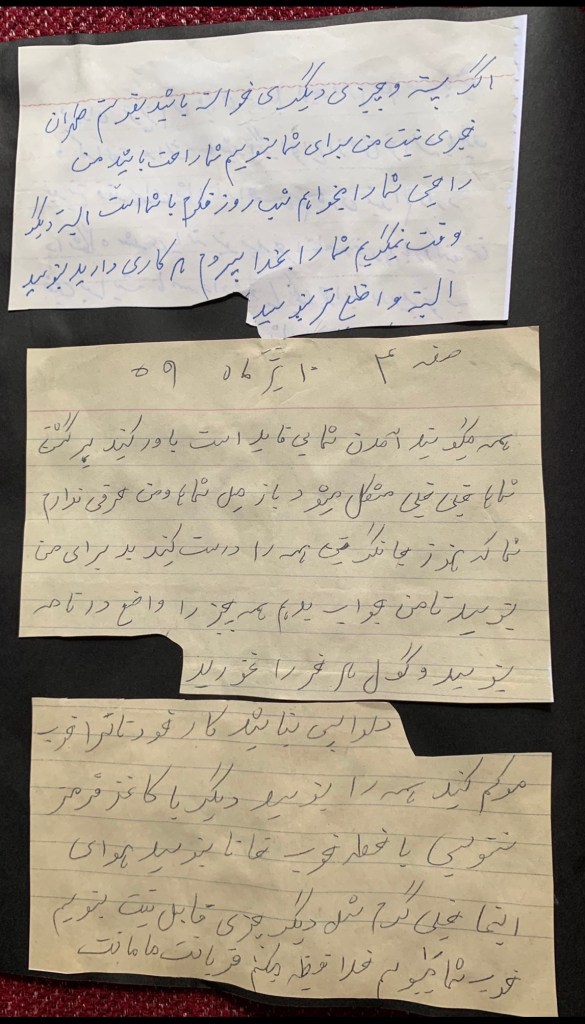 اگر پسته و چیزی دیگری خواسته باشید بفرستم طهران
خبری نیست من برای شما بنویسم شما راحت باشید من
راحتی شما را بخواهم شب روز فکرم با شما است البته دیگر
وقت نمیگریم شما را بخدا سپردم هر کاری دارید بنویسید
البته واضع تر بنویسید
صفحه ۴ ۱۰ تیر ماه ۵۹
همه میگویند آمدن شما بی فایده است باور کنید برگشت
شماها خیلی خیلی مشکل میشود باز میل شماها ومن حرفی ندارم
شما که هنوز جا نگرفتی همه را درست کنید بد برای من
بنویسید تا من جواب بدهم همه چیز را واضع در نامه
بنویسید و گول هر خر را نخورید
دلواپس نباشید کار خودتانرا خوب
موکم کنید همه را بنویسید دیگر با کاغذ قرمز
ننویسی با خط خوب خانا بنویسید هوای
اینجا خیلی گرم شده دیگر چیزی قابل نیست بنویسم
خوب شما را میبوسم خداحافظی میکنم قربانت مامانت